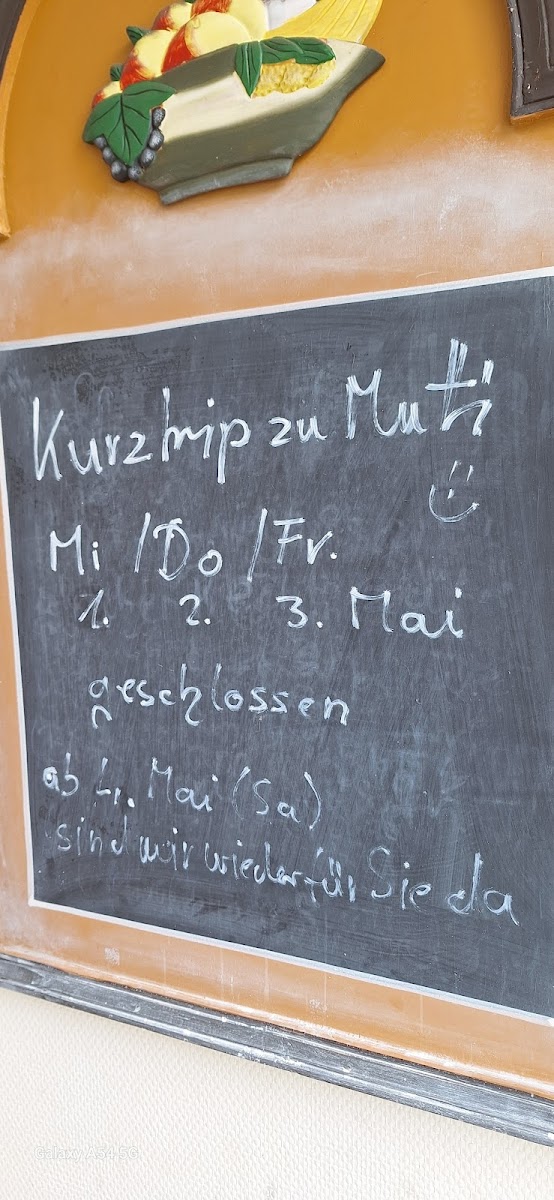 Kurztrip zu Mutti
Mi / Do / Fr.
1. 2. 3. Mai
geschlossen
ab 4. Mai (Sa)
sind wir wieder für Sie da
Galaxy A54 5G